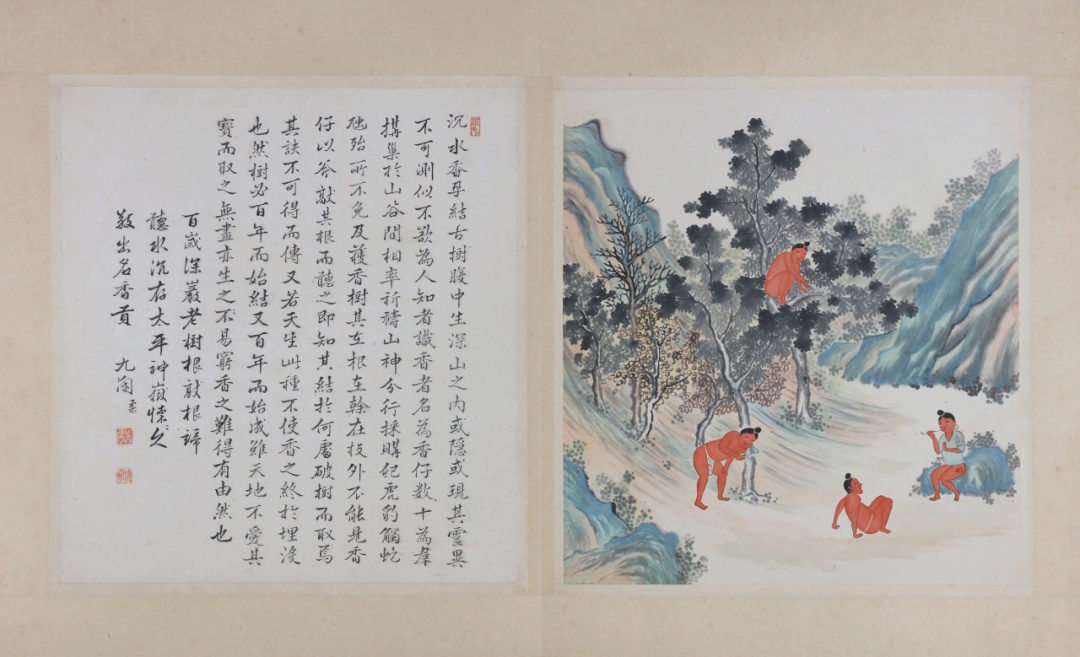 沉水香孕結古樹腹中生深山之內或隱或現其靈異
不可測似不欲為人知者識香者名為香仔數十為羣
搆巢於山谷間相率祈禱山神分行採購犯虎豹觸虵
虺殆所不免及獲香樹其在根在幹在枝外不能見香
仔以斧敲其根而聽之即知其結於何處破樹而取焉
其訣不可得而傳又若天生此種不使香之終於埋沒
也然樹必百年而始結又百年而始成雖天地不愛其
寶而取之無盡亦生之不易窮香之難得有由然也
百歲深巖老樹根敲根諦
聽水沉存太平神嶽懷久
敬出名香貢 九閽